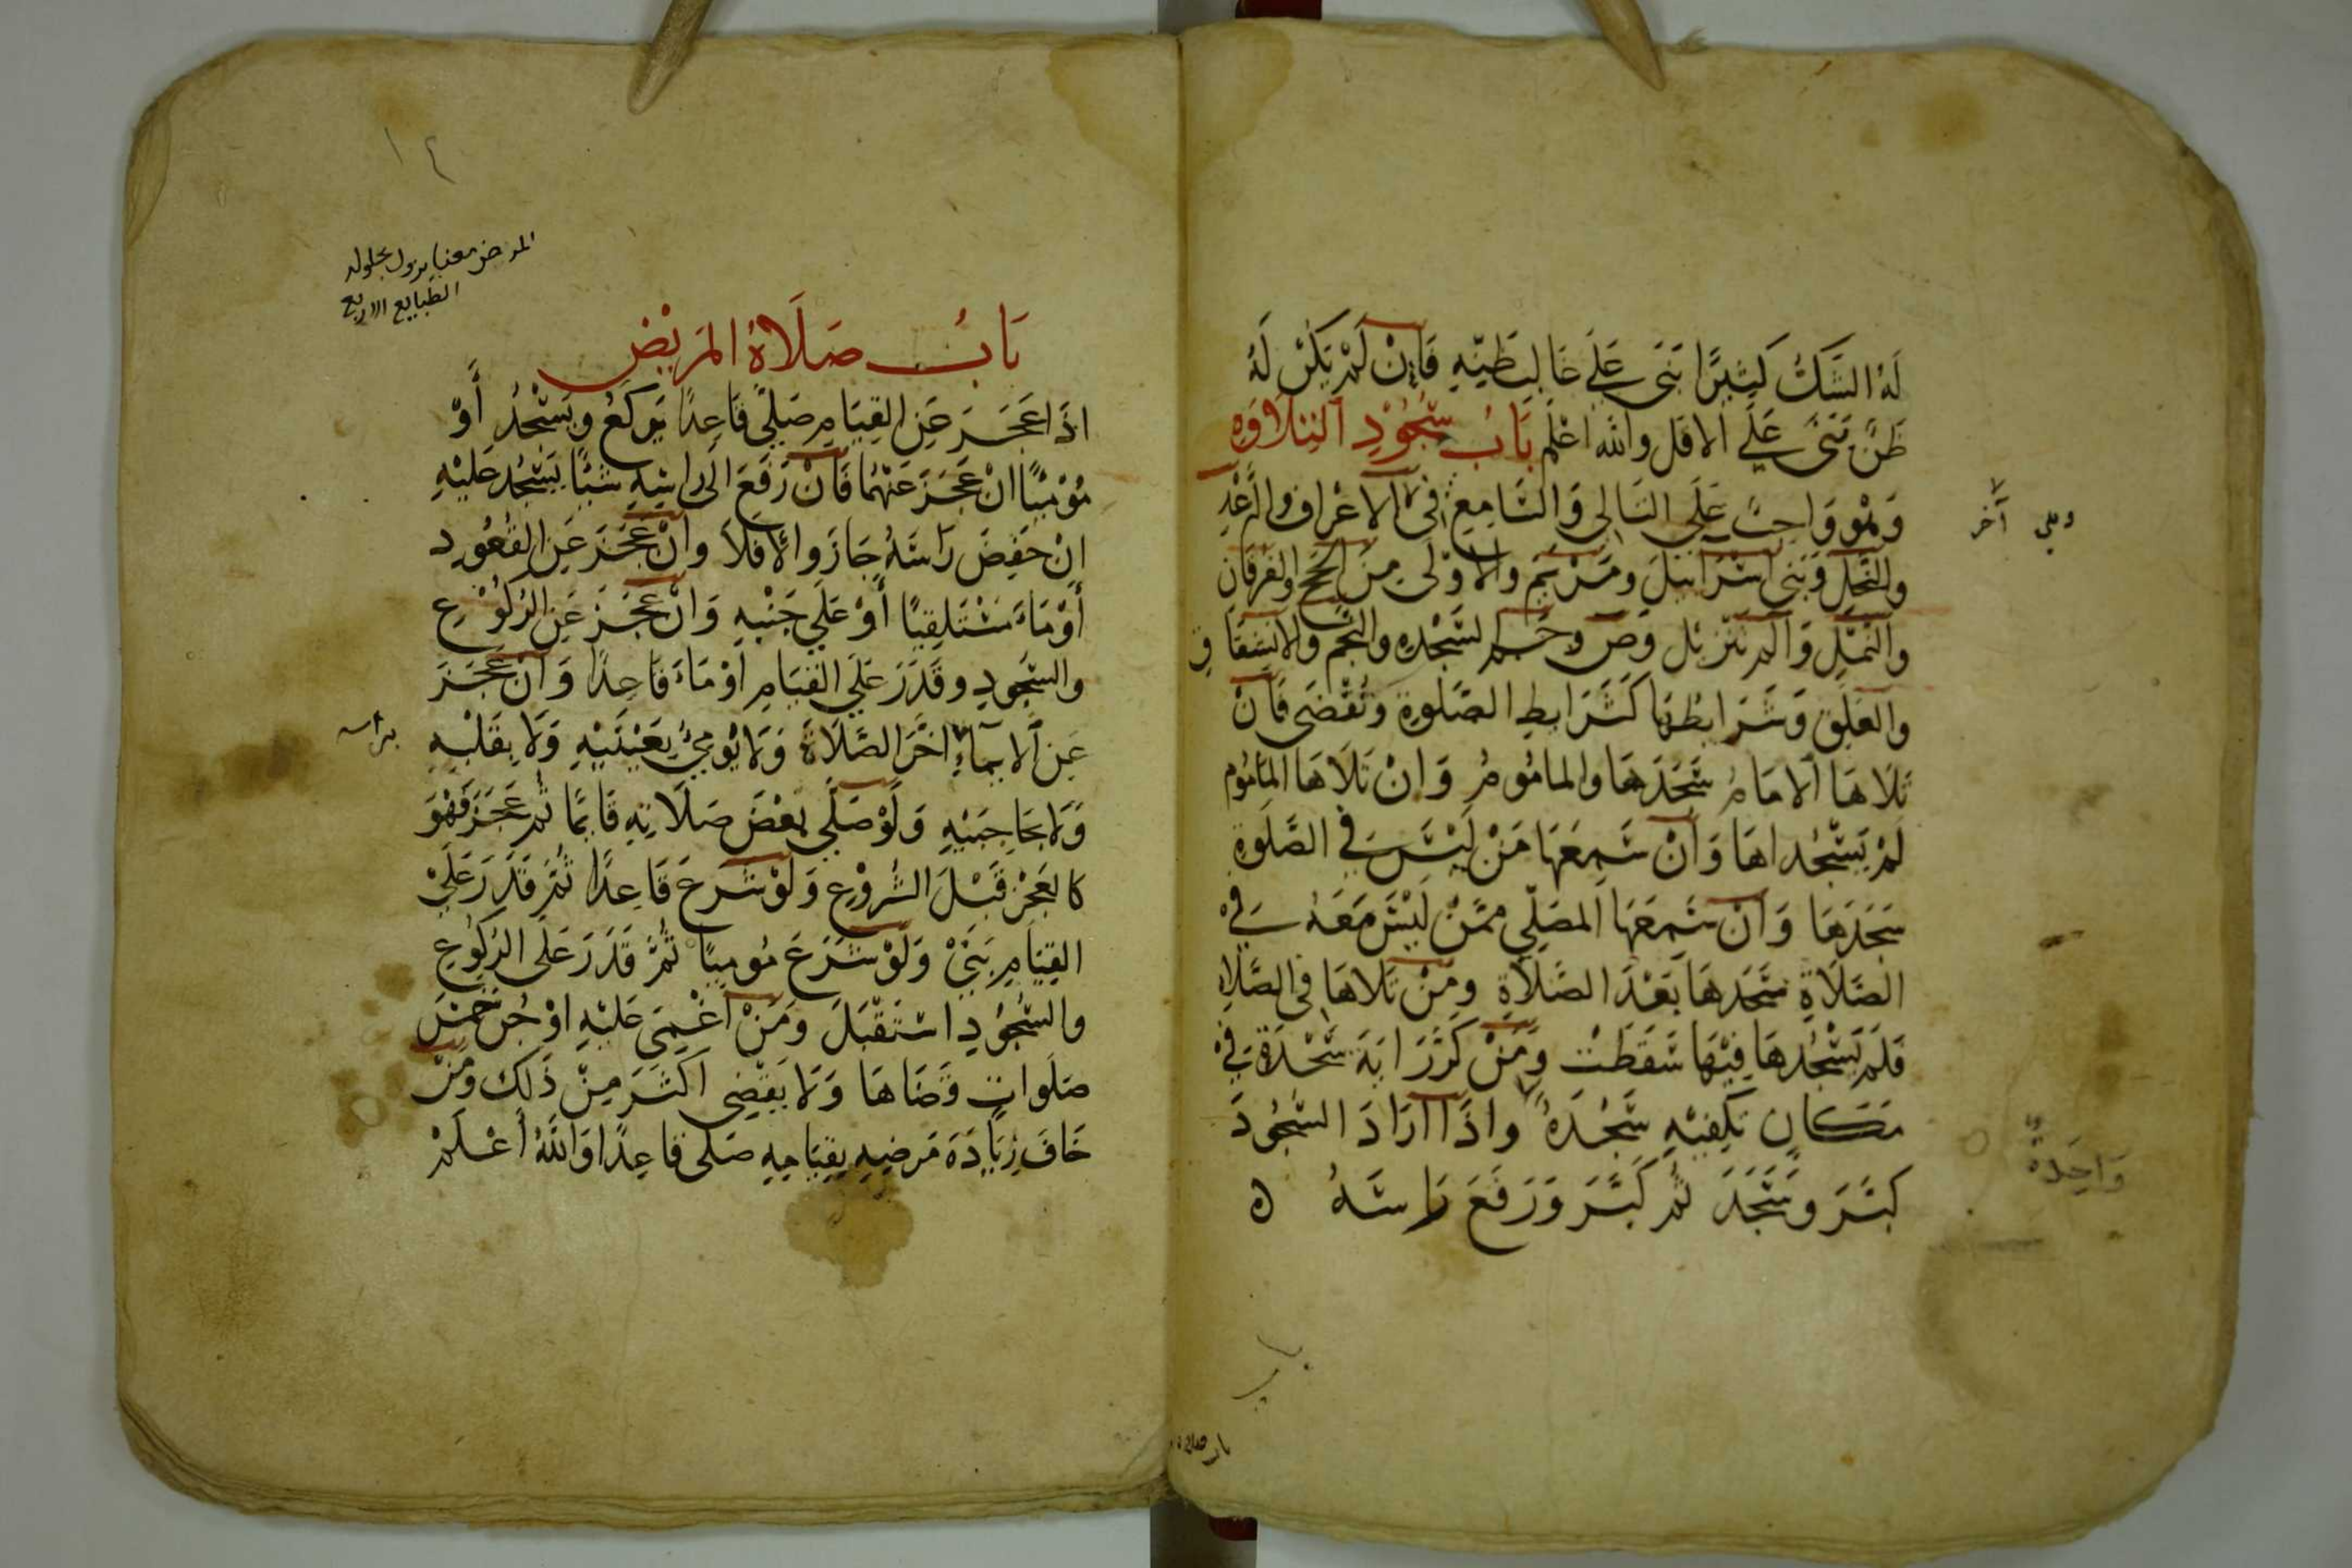 لَهُ الشَّكُّ كَثِيرًا بَنَى عَلَى غَالِبِ ظَنِّهِ فَإِنْ لَمْ يَكُنْ لَهُ
ظَنٌّ بَنَى عَلَى الاقل والله اعلم بَابُ سُجُوْدِ التِلَاوَهِ
وَهُوَ وَاجِبٌ عَلَى التَالِى وَالسَّامِعِ فى الاعْرَافِ والرَّعْدِ
والنَّحْلِ وَبَنِى اسْرَائِيلَ ومَرْيَمَ والاوْلَى مِنَ الحَجِّ والفُرْقَانِ
والنَّمْلِ وَالم تَنْزيل وَصَ وحم السَّجْدهِ والنَّجْمِ والانشِقَاقِ
والعَلَقِ وَشَرَايطُهَا كَشَرَايطِ الصَّلوةِ وتُقْضَى فَاِنْ
تَلَاهَا الامَامُ سَجَدَهَا والمامُومُ وَانْ تَلَاهَا المَامُوم
لَمْ يَسْجُداهَا وَاِنْ سَمِعَهَا مَنْ لَيْسَ فِي الصَّلَوةِ
سَجَدَهَا وَانْ سَمعَهَا المصَلّي مِمَّنْ لَيْسَ مَعَهُ فِى
الصَّلَاةِ سَجَدهَا بَعْدَ الصَّلَاةِ ومَنْ تَلاهَا فى الصَّلاه
فَلَمْ يَسْجُدهَا فِيْهَا سَقَطَتْ وَمَنْ كَرَّرَ ايَةَ سَجْدَةٍ فِي
مَكَانٍ تَكِفيْهِ سَجْدَةٌ واذَا ارَادَ السُّجُودَ
وَاحِدَةٌ
كَبَّرَ وسَجَدَ ثُم كَبَّرَ وَرَفَعَ رَاسَهُ ه
١٢
الطبايع الاربع
بَابُ صَلَاةُ المَرِيْضِ
اذَا عَجَزَ عَنِ القِيَامِ صَلَّى قَاعِدًا يَركَعُ ويَسْجُدُ أَوْ
مُوْمِيًا انْ عَجَزَ عَنْهُمَا فَانْ رَفَعَ الَى رَاسِهِ شَيْئًا يَسْجُد عَلَيْهِ
اِنْ خَفِضَ رَاسَهُ جَازَ والّا فَلَا وانْ عَجَزَ عَنِ القُعُودِ
أَوْمَاءَ مُسْتَلقِيًا أَوْ عَلَى جَنْبِهِ وَانْ عَجَزَ عَنِ الرُكُوْعِ
والسُّجُودِ وقَدَرَ عَلَى القِيَامِ اوْمَاءَ قَاعِدًا وَانْ عَجَزَ
عَنِ الايمآءِ اخَّرَ الصَّلَاةَ وَلَا يُوْمِيْ بِعَيْنَيْهِ وَلَا بِقَلْبِهِ
براسه
وَلَا بحَاجِبَيْهِ وَلَوْ صَلَّى بعْضَ صَلَاتِهِ قَايمًا ثُم عَجَزَ فَهُوَ
كالعَجْزِ قَبْلَ الشُرُوْعِ وَلَوْ شَرعَ قَاعِدًا ثُمَّ قَدَرَ عَلَىْ
القِيَامِ بَنَىْ وَلَوْ شَرَعَ مُوميًا ثُمَّ قَدَرَ عَلَى الرُكُوعِ
والسُّجُوْدِ اسْتَقْبَلَ ومَنْ اغْمِيَ عَلَيْهِ اوْ جُنَّ خَمْسَ
صَلَواتٍ قَضَاهَا وَلَا يَقْضِى اكْثَرَ مِنْ ذَلِكَ ومَنْ
خَافَ زِيَادَةَ مَرضِهِ بِقِيَامِهِ صَلى قاعِدًا وَاللَّهُ أعْلَمْ